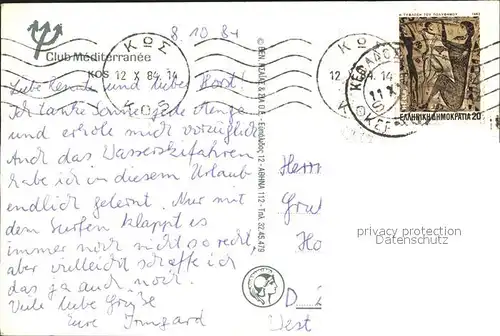 8.10.84
Club Méditerranée
ΚΩΣ
KOS 12 X 84. 14
ΚΟΣ
Liebe Renate und lieber Horst!
Ich tanke Sonne jede Menge
und erhole mich vorzüglich.
Auch das Wasserskifahren
habe ich in diesem Urlaub
endlich gelernt. Nur mit
dem Surfen klappt es
immer noch nicht so recht,
aber vielleicht schaffe ich
das ja auch noch.
Viele liebe Grüße
Eure Irmgard
12 X 84. 14
11 X
ΕΛΛΗΝΙΚΗ ΔΗΜΟΚΡΑΤΙΑ 20
ΑΘΗΝΑ 112 - Τηλ. 32.45.479
Herrn
privacy protection
Datenschutz
D
West